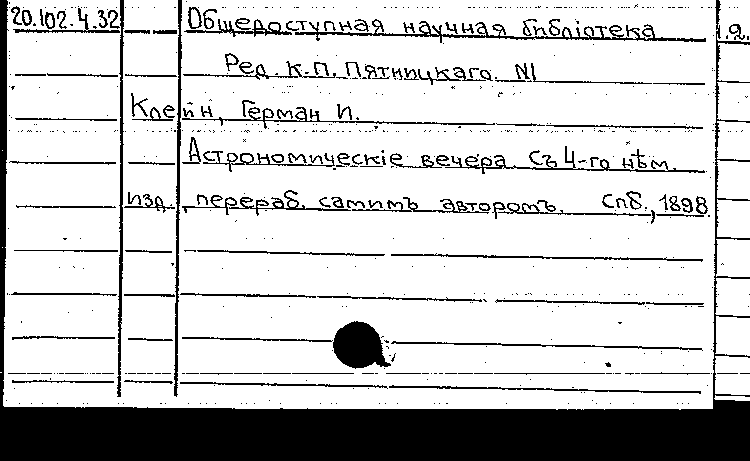 20.102.4.32 Общедоступная научная библіотека
Ред. К.П. Пятницкаго. N1
Клейн, Герман И.
Астрономическіе вечера. Съ 4-го нѣм.
изд., перераб. самимъ авторомъ. Спб., 1898